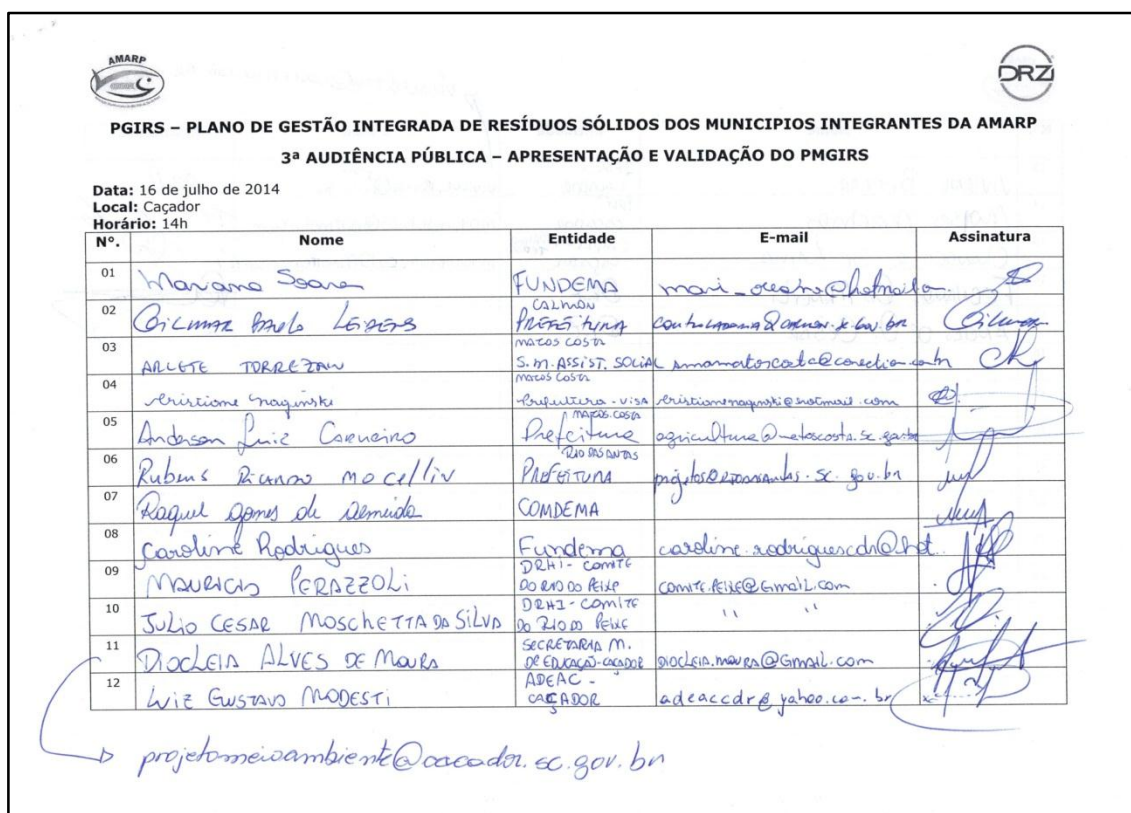 AMARP
DRZ
PGIRS – PLANO DE GESTÃO INTEGRADA DE RESÍDUOS SÓLIDOS DOS MUNICIPIOS INTEGRANTES DA AMARP
3ª AUDIÊNCIA PÚBLICA – APRESENTAÇÃO E VALIDAÇÃO DO PMGIRS
Data: 16 de julho de 2014
Local: Caçador
Horário: 14h
Nº. Nome Entidade E-mail Assinatura
01 Mariana Soares FUNDEMA
02 Gilmar Paulo CALMON PREFEITURA Gilmar
03 ARLETE TORREZAN MATOS COSTA S.M. ASSIST. SOCIAL
04 MATOS COSTA Prefeitura - VISA
05 Anderson Luiz Carneiro MATOS COSTA Prefeitura
06 Rubens Ricardo Mocellin RIO DAS ANTAS PREFEITURA
07 Raquel Gomes de Almeida COMDEMA
08 Caroline Rodrigues Fundema caroline.rodriguescdr@hot.
09 MAURICIO PERAZZOLI DRHI - COMITE DO RIO DO PEIXE COMITE.PEIXE@GMAIL.COM
10 JULIO CESAR MOSCHETTA DA SILVA DRHI - COMITE DO RIO DO PEIXE " "
11 DIOCLEIA ALVES DE MOURA SECRETARIA M. DE EDUCAÇÃO-CAÇADOR DIOCLEIA.MOURA@GMAIL.COM
12 LUIZ GUSTAVO MODESTI ADEAC - CAÇADOR adeaccdr@yahoo.com.br
projetomeioambiente@cacador.sc.gov.br